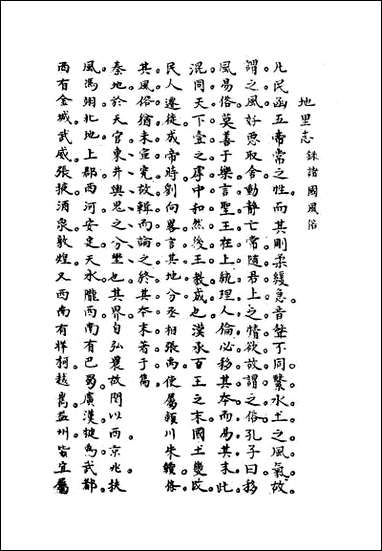 地里志 錄諸國風俗
凡民函五帝常之性。而其剛柔緩急音聲不同。繫水土之風氣。故
謂之風好惡取舍動靜亡常隨君上之情欲。故謂之俗。孔子曰移
風易俗莫善于樂。言聖王在上。統理人倫。必移其本而易其末。此
混同天下壹之虖中和。然後王教成也。漢承百王之末。國土變改。
民人遷徙。成帝時。劉向畧言其地分。丞相張禹使屬潁川朱贛條
其風俗。猶未宣究。故輯而論之。終其本末著于篇
秦地於天官東井輿鬼之分壄也。其界自弘農故關以西。京兆扶
風。馮翊。北地。上郡。西河。安定。天水。隴西。南有巴。蜀。廣漢。犍為。武都。
西有金城。武威。張掖。酒泉。敦煌。又西南有牂柯。越嶲。益州。皆宜屬